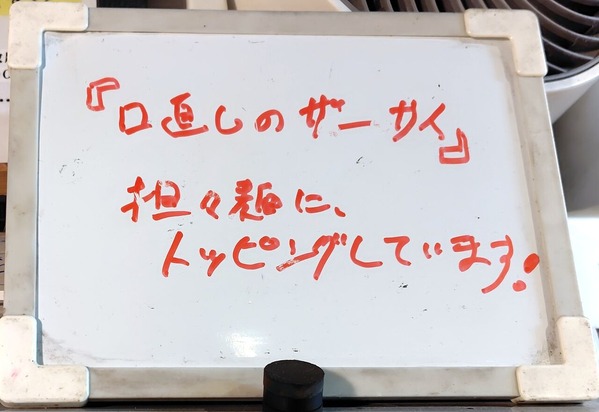 『口直しのザーサイ』
担々麺に、
トッピングしています!